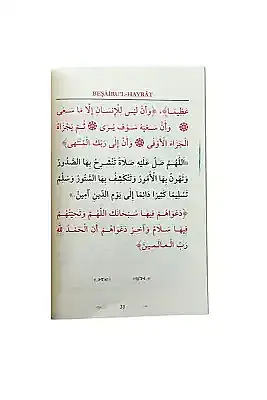 BEŞAİRU'L-HAYRÂT
عَظِيمًا﴾، ﴿وَأَنْ لَيْسَ لِلْإِنْسَانِ إِلَّا مَا سَعَى
۞ وَأَنَّ سَعْيَهُ سَوْفَ يُرَى ۞ ثُمَّ يُجْزَاهُ
الْجَزَاءَ الْأَوْفَى ۞ وَأَنَّ إِلَى رَبِّكَ الْمُنْتَهَى﴾
«اَللّٰهُمَّ صَلِّ عَلَيْهِ صَلَاةً تَنْشَرِحُ بِهَا الصُّدُورُ
وَتَهُونُ بِهَا الْأُمُورُ وَتَنْكَشِفُ بِهَا السُّتُورُ وَسَلِّمْ
تَسْلِيمًا كَثِيرًا دَائِمًا إِلَى يَوْمِ الدِّينِ آمِينَ.»
﴿دَعْوَاهُمْ فِيهَا سُبْحَانَكَ اللّٰهُمَّ وَتَحِيَّتُهُمْ
فِيهَا سَلَامٌ وَآخِرُ دَعْوَاهُمْ أَنِ الْحَمْدُ لِلّٰهِ
رَبِّ الْعَالَمِينَ﴾